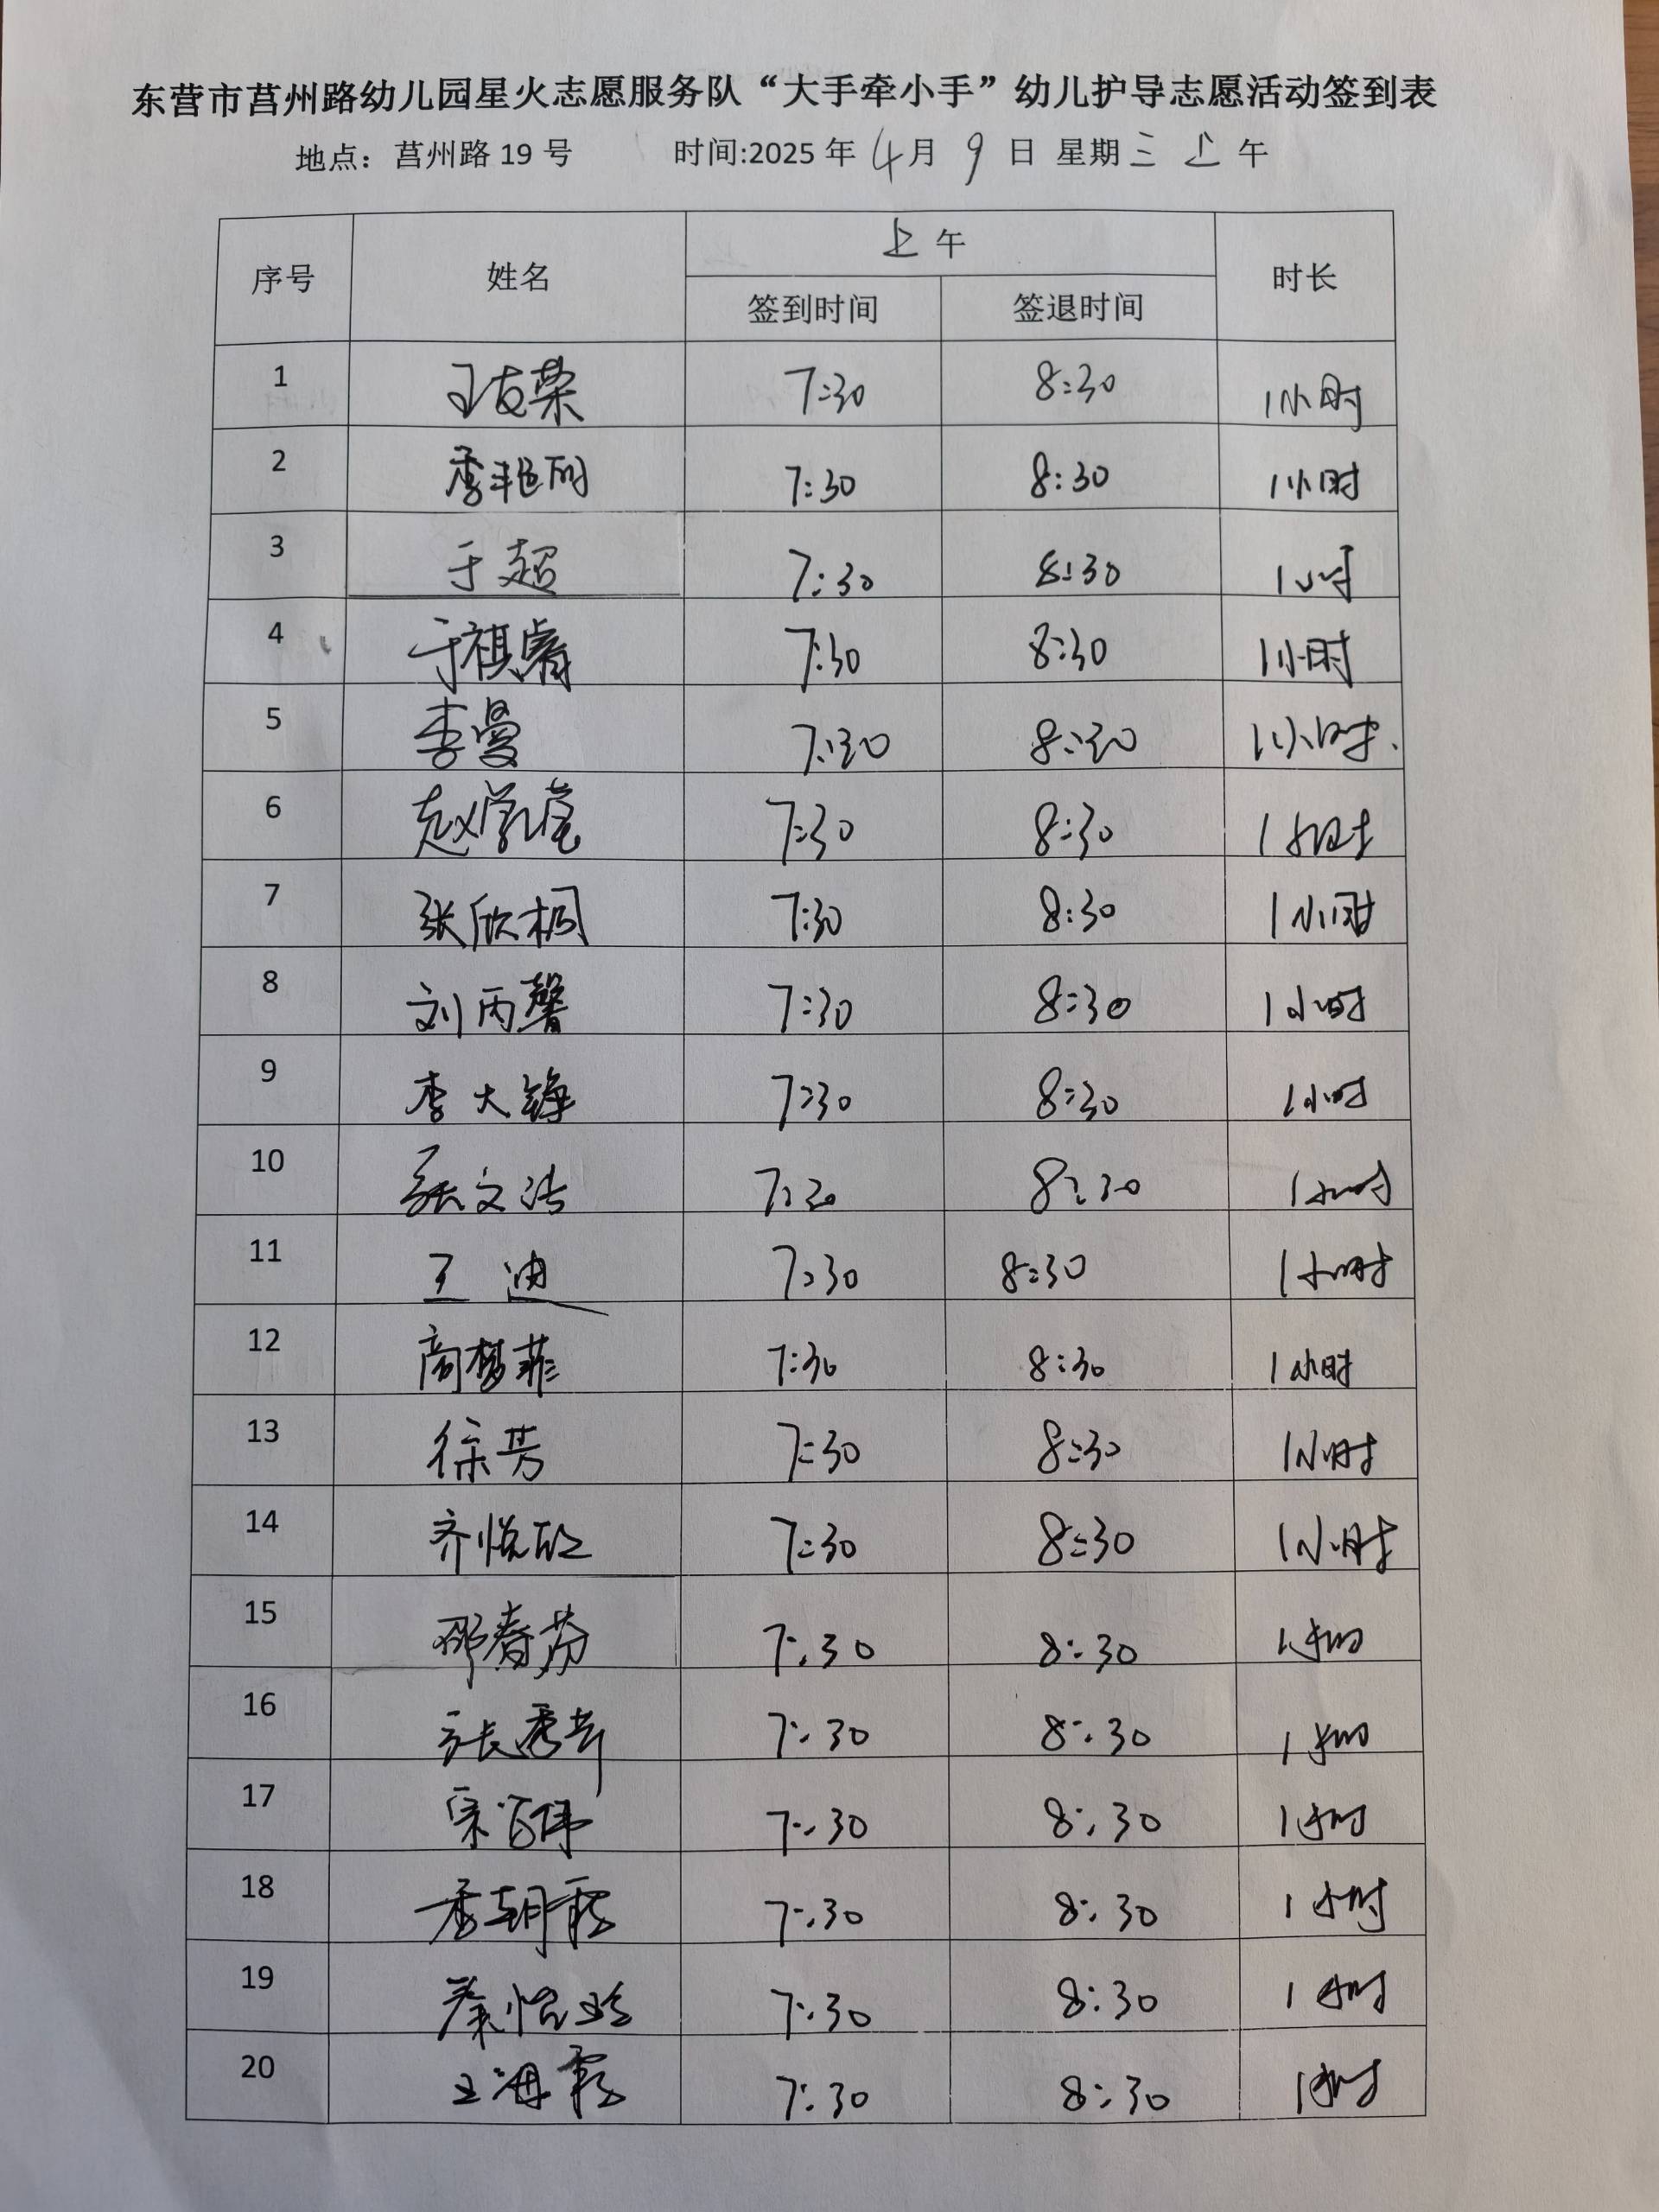 东营市莒州路幼儿园星火志愿服务队“大手牵小手”幼儿护导志愿活动签到表
地点：莒州路19号 时间:2025年4月9日 星期三 上午
序号 姓名 上午 时长
签到时间 签退时间
1 王友荣 7:30 8:30 1小时
2 李艳丽 7:30 8:30 1小时
3 于超 7:30 8:30 1小时
4 于祺睿 7:30 8:30 1小时
5 李曼 7:30 8:30 1小时.
6 赵学莹 7:30 8:30 1小时
7 张欣桐 7:30 8:30 1小时
8 刘丙馨 7:30 8:30 1小时
9 李大铮 7:30 8:30 1小时
10 张文洁 7:30 8:30 1小时
11 王迪 7:30 8:30 1小时
12 商梦菲 7:30 8:30 1小时
13 徐芳 7:30 8:30 1小时
14 齐悦欣 7:30 8:30 1小时
15 邵春芬 7:30 8:30 1小时
16 张秀芹 7:30 8:30 1小时
17 7:30 8:30 1小时
18 李朝霞 7:30 8:30 1小时
19 秦怡玲 7:30 8:30 1小时
20 王海霞 7:30 8:30 1小时